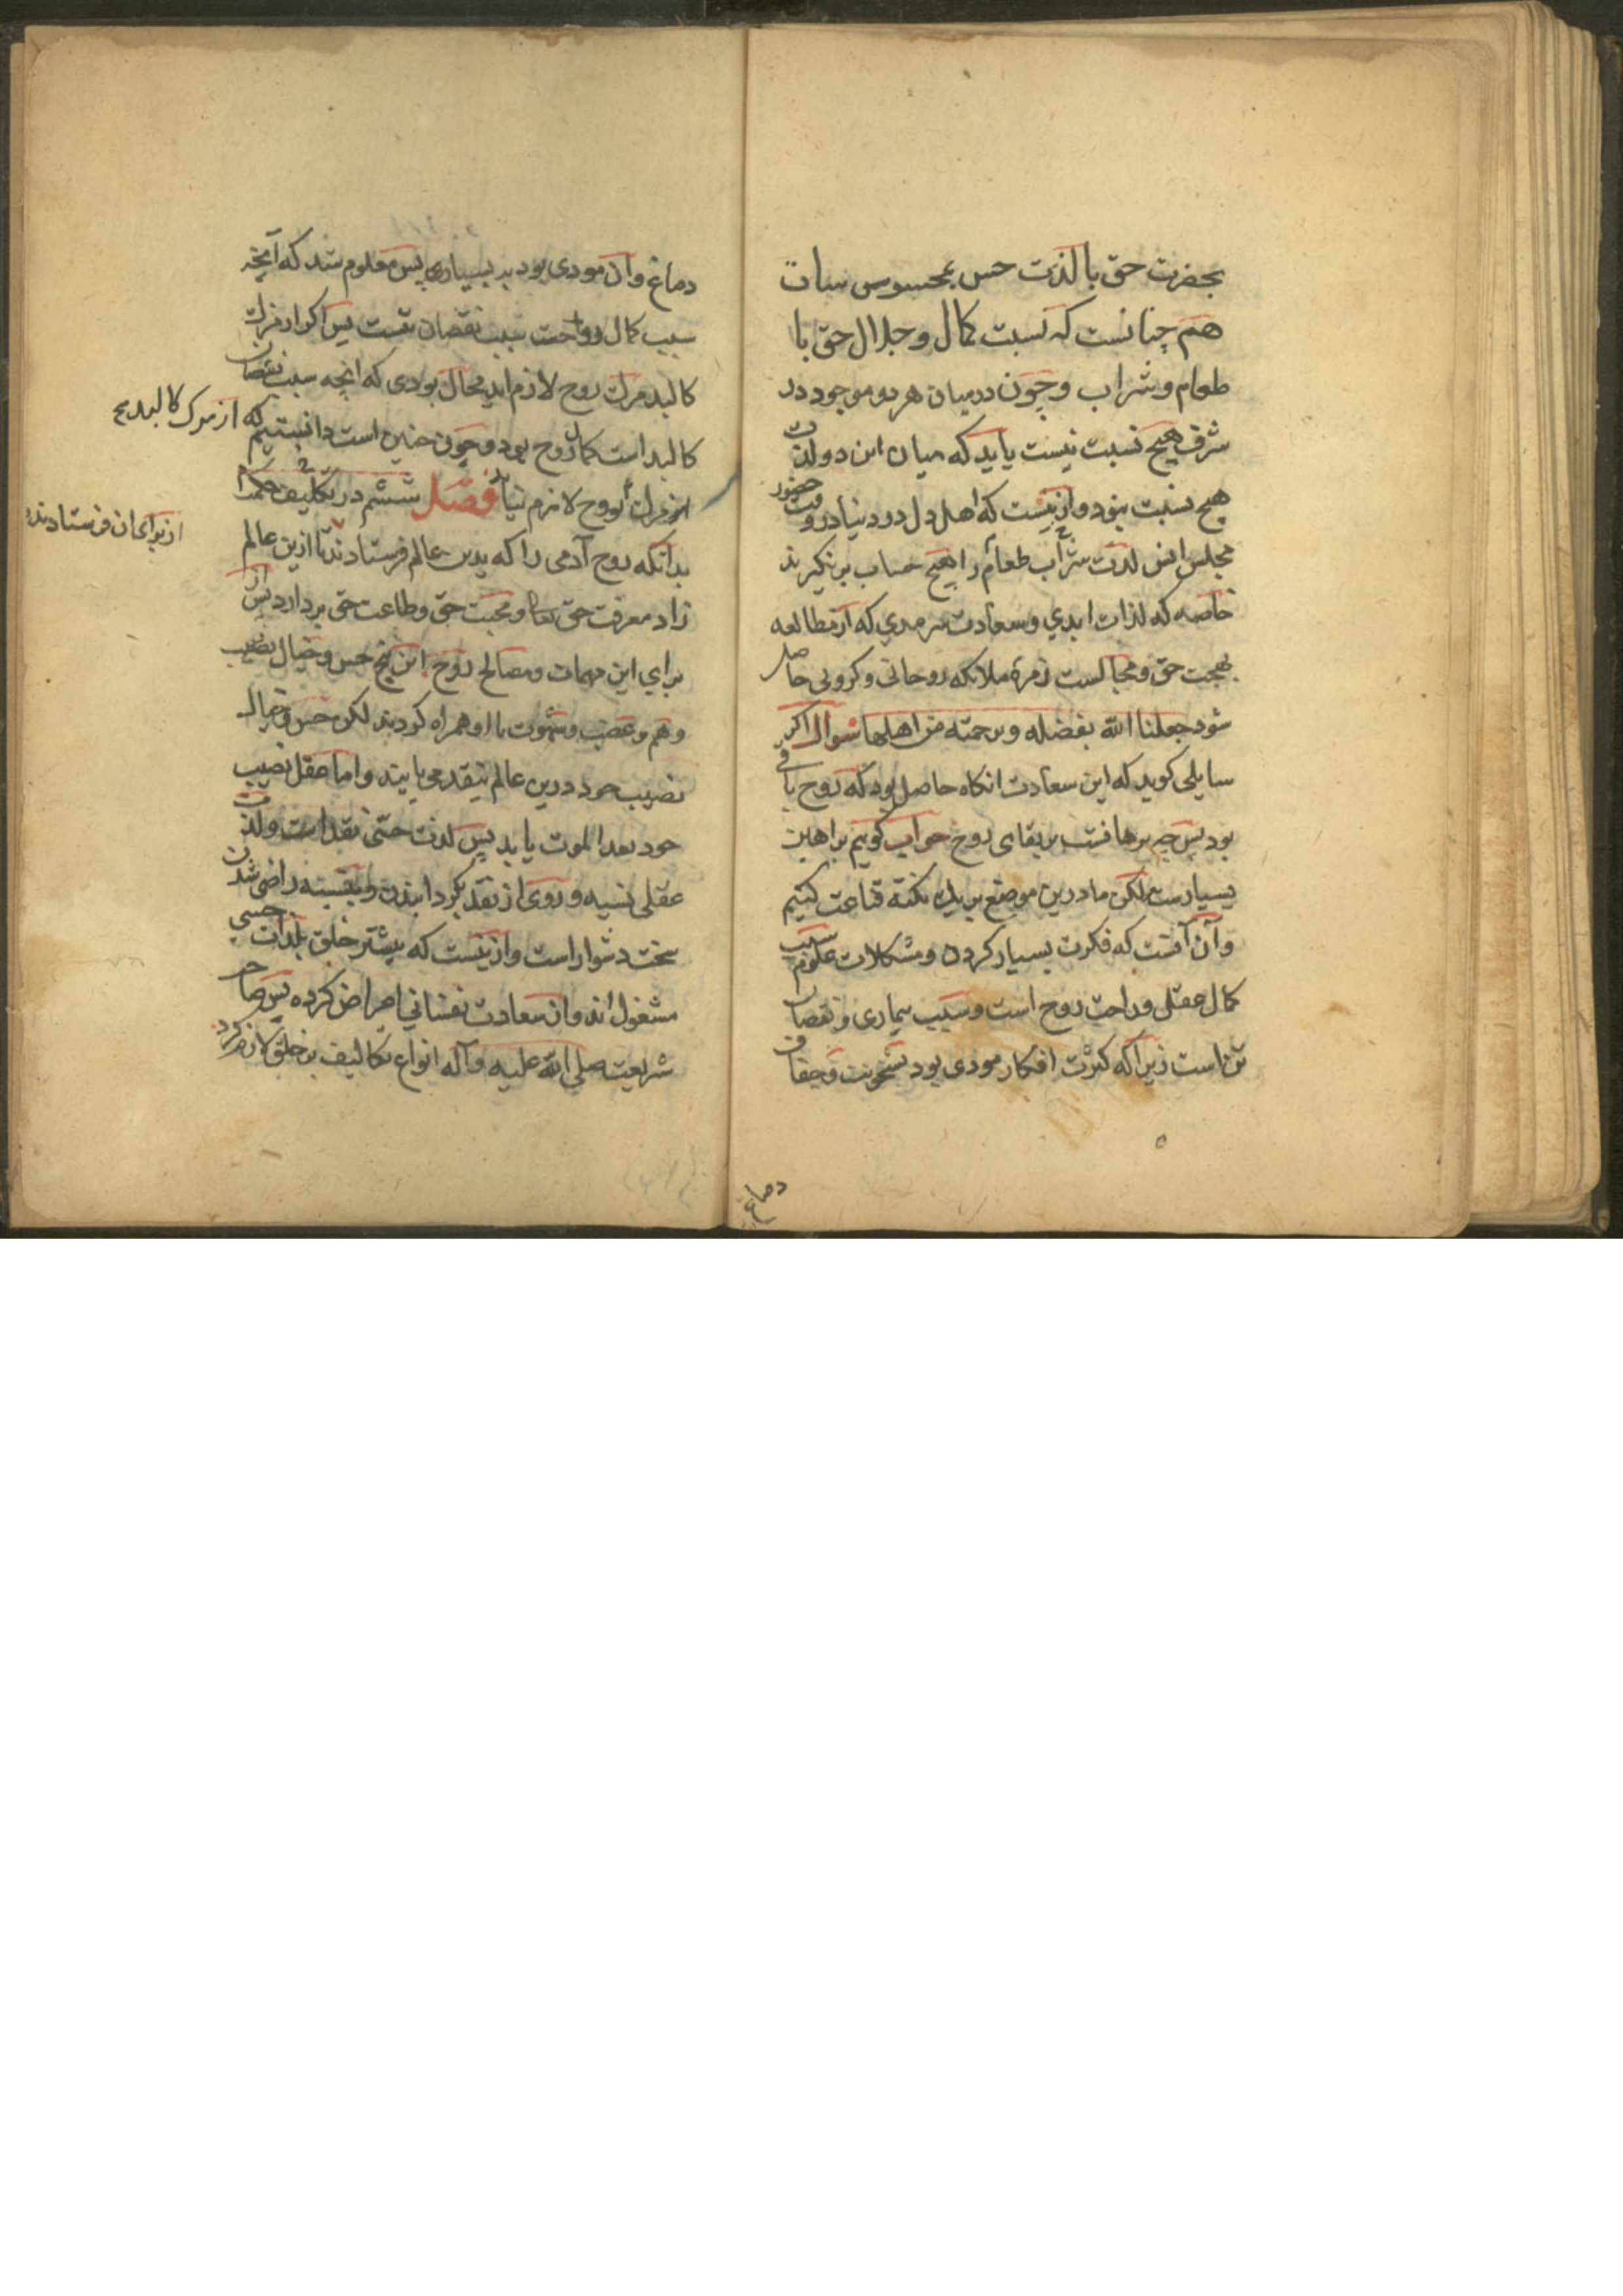 بحضرت حق با لذت حس بمحسوسات
هم چنانست که نسبت کمال و جلال حق با
طعام و شراب و چون در میان هر دو موجود در
شرف هیچ نسبت نیست باید که میان این دو لذت
هیچ نسبت نبود و ازینست که اهل دل در دنیا در وقت حضور
مجلس انس لذت شراب طعام را هیچ حساب برنگیرند
خاصه که لذات ابدي و سعادت سرمدي که از مطالعه
بهجت حق و مجالست زمرهٔ ملائکه روحانی و کروبی حاصل
شود جعلنا الله بفضله و رحمته من اهلها سوال اگر
سایلی کوید که این سعادت انکاه حاصل بود که روح باقی
بود پس چه برهانست بر بقای روح جواب کوییم براهین
بسیارست لکن ما درین موضع بر یک نکته قناعت کنیم
و آن آنست که فکرت بسیار کردن و مشکلات علوم سبب
کمال عقلی و راحت روح است و سبب بیماری و نقصان
تن است زیرا که کثرت افکار مودی بود بسخونت و جفاف
دماغ
دماغ و آن مودی بود به بیماری پس معلوم شد که آنچه
سبب کمال و راحت سبب نقصان تنست پس اکر از مرك
کالبد مرك روح لازم اید محال بودی که انچه سبب نقصان
کالبد است کمال روح بود و چون چنین است دانستیم که از مرک کالبد
مرك روح لازم نیاید فصل ششم در تکلیف
بدانکه روح آدمی را که بدین عالم فرستادند از برای ان فرستادند تا ازین عالم
زاد معرفت حق تعالی و محبت حق و طاعت حق بردارد پس از
برای این مهمات و مصالح روح این پنج حس و خیال نصیب
و هم و غضب و شهوت با او همراه کردند لکن حس و خیال
نصیب خود درین عالم بنقد می یابند و اما عقل نصیب
خود بعد الموت یابد پس لذت حسی نقد است و لذت
عقلی نسیه و روی از نقد بکردانیدن و بنسیه راضی شدن
سخت دشوار است و ازینست که بیشتر خلق بلذات حسی
مشغول اند و از سعادت نفسانی اعراض کرده پس صاحب
شریعت صلی الله علیه و آله انواع تکالیف بر خلق لازم کرد